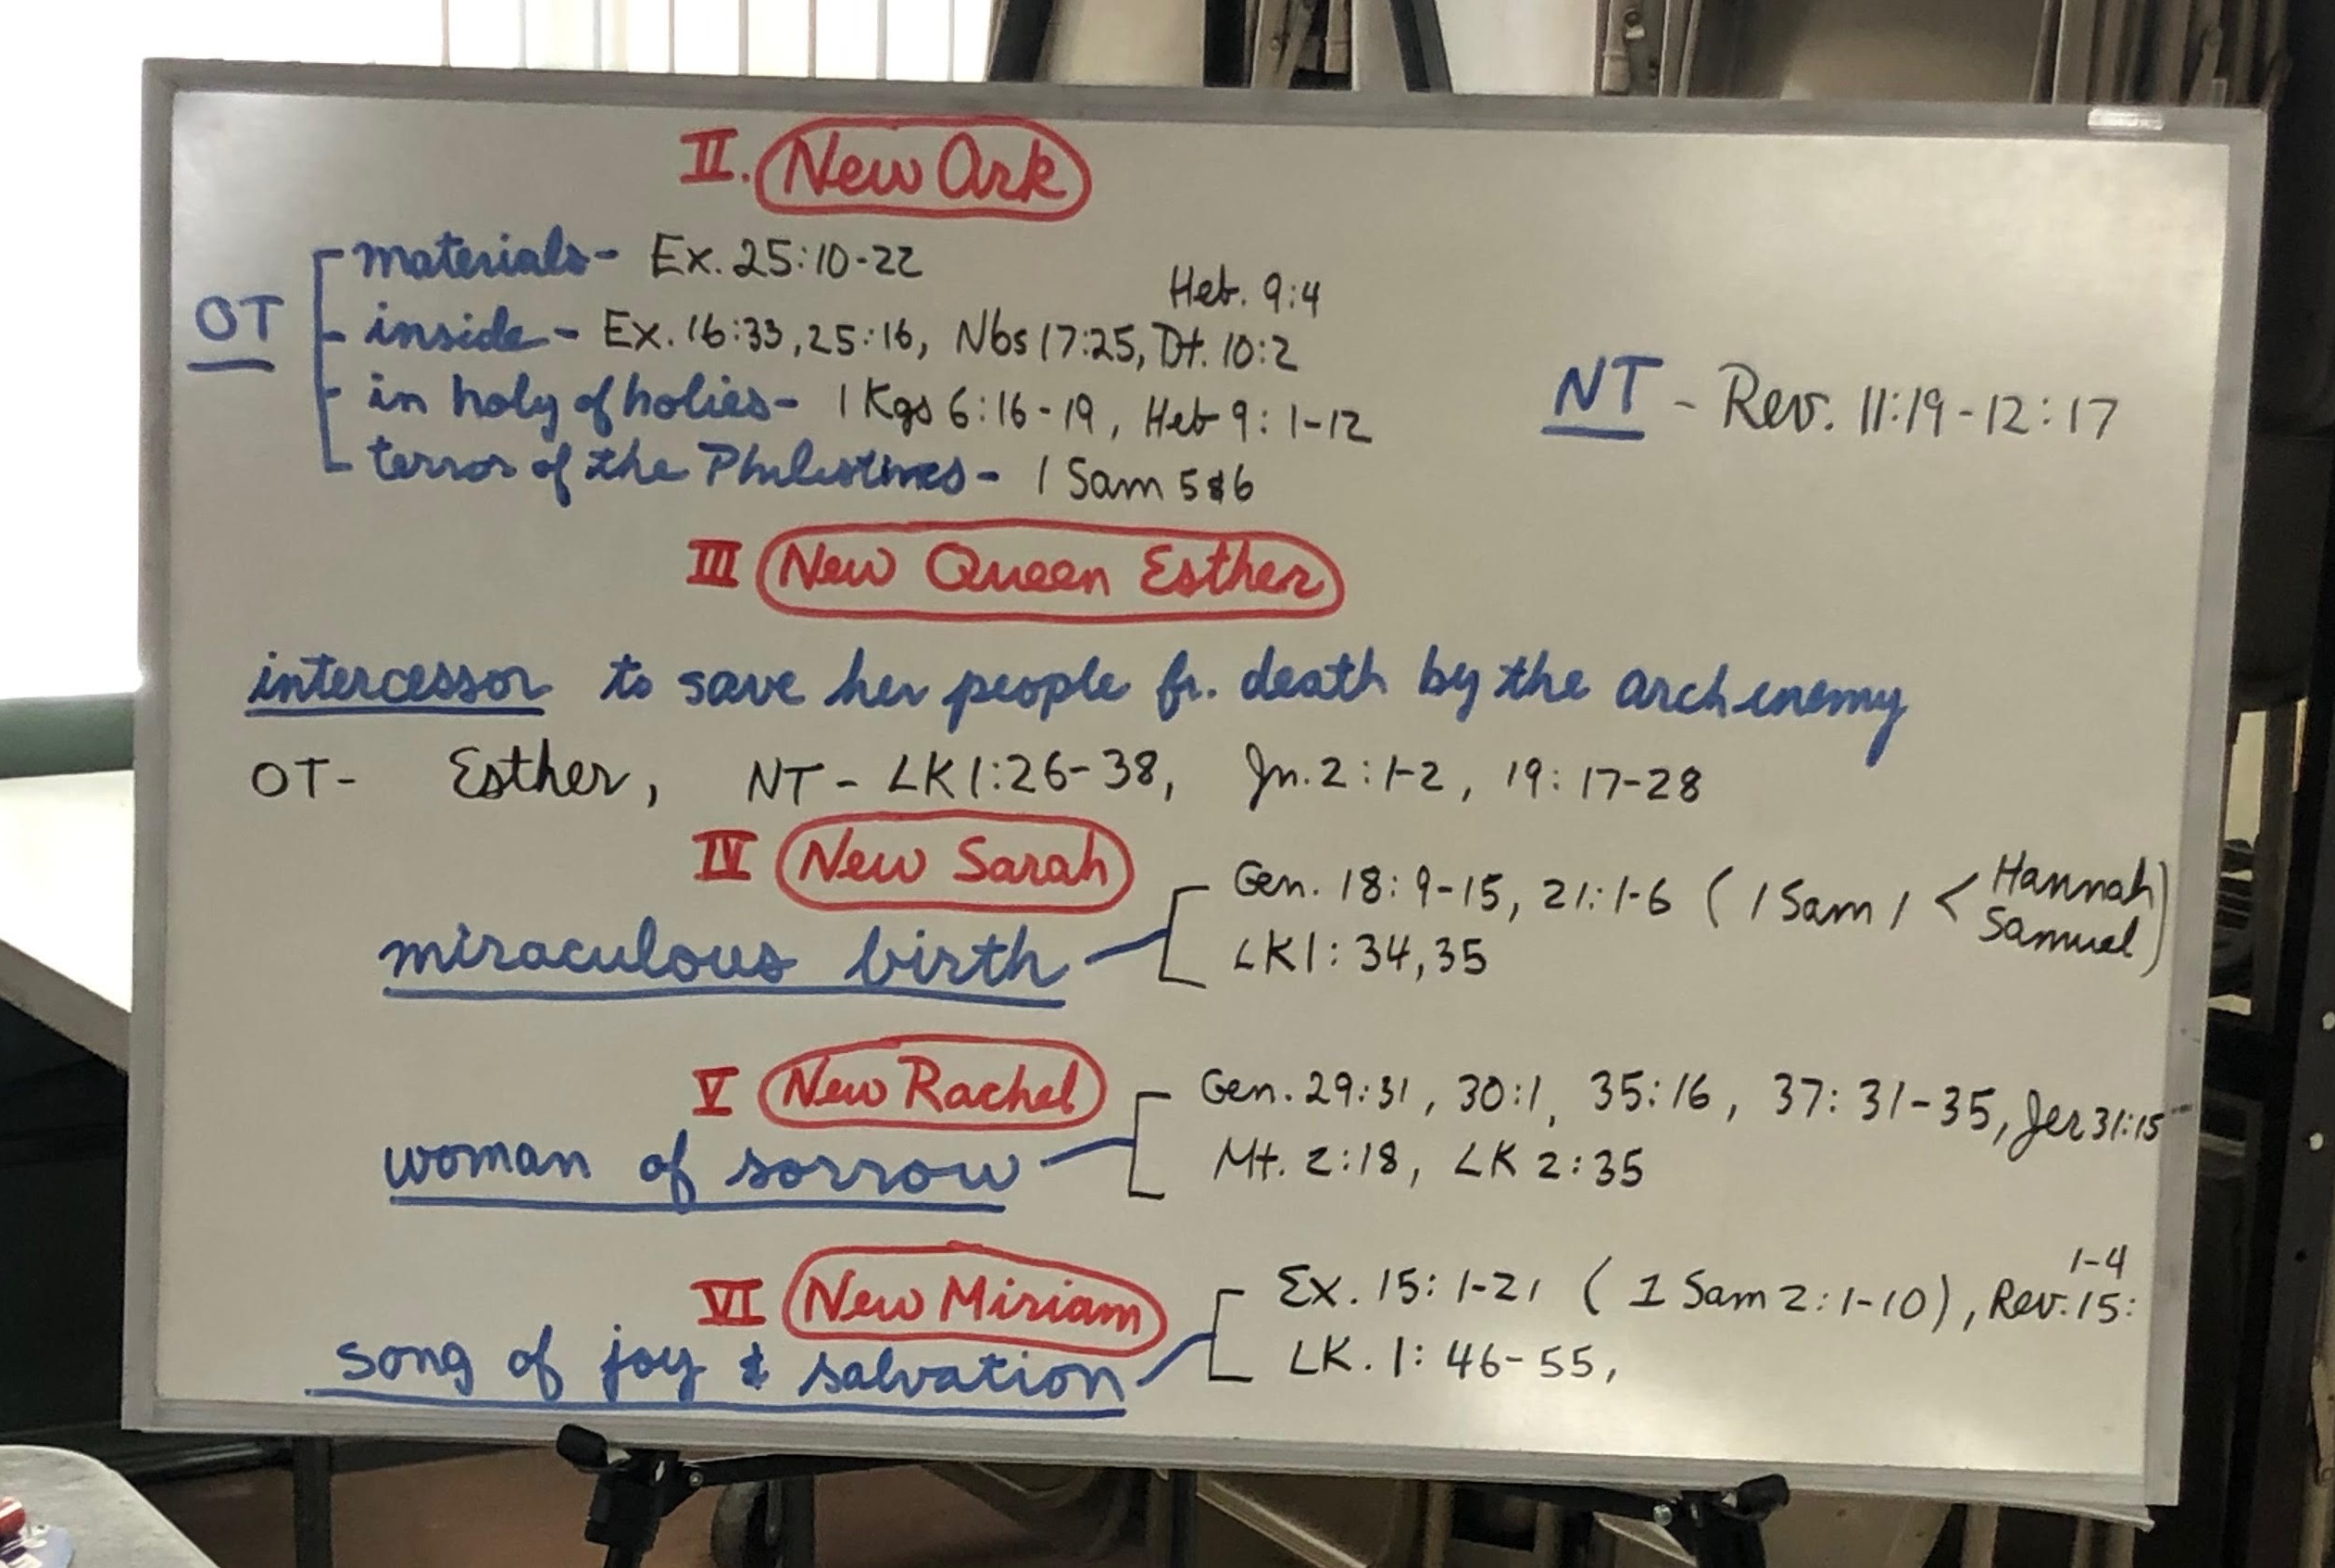 II. New Ark
materials - Ex. 25:10-22
Heb. 9:4
OT
inside - Ex. 16:33, 25:16, Nbs 17:25, Dt. 10:2
in holy of holies - 1 Kgs 6:16-19, Heb 9:1-12
NT - Rev. 11:19-12:17
terror of the Philistines - 1 Sam 5&6
III New Queen Esther
intercessor to save her people fr. death by the archenemy
OT- Esther, NT - LK 1:26-38, Jn. 2:1-2, 19:17-28
IV New Sarah
Gen. 18:9-15, 21:1-6 (1 Sam 1 < Hannah
Samuel)
miraculous birth
LK 1:34,35
V New Rachel
Gen. 29:31, 30:1, 35:16, 37:31-35, Jer 31:15
woman of sorrow
Mt. 2:18, LK 2:35
VI New Miriam
1-4
Ex. 15:1-21 (1 Sam 2:1-10), Rev. 15:
song of joy & salvation
LK. 1:46-55,